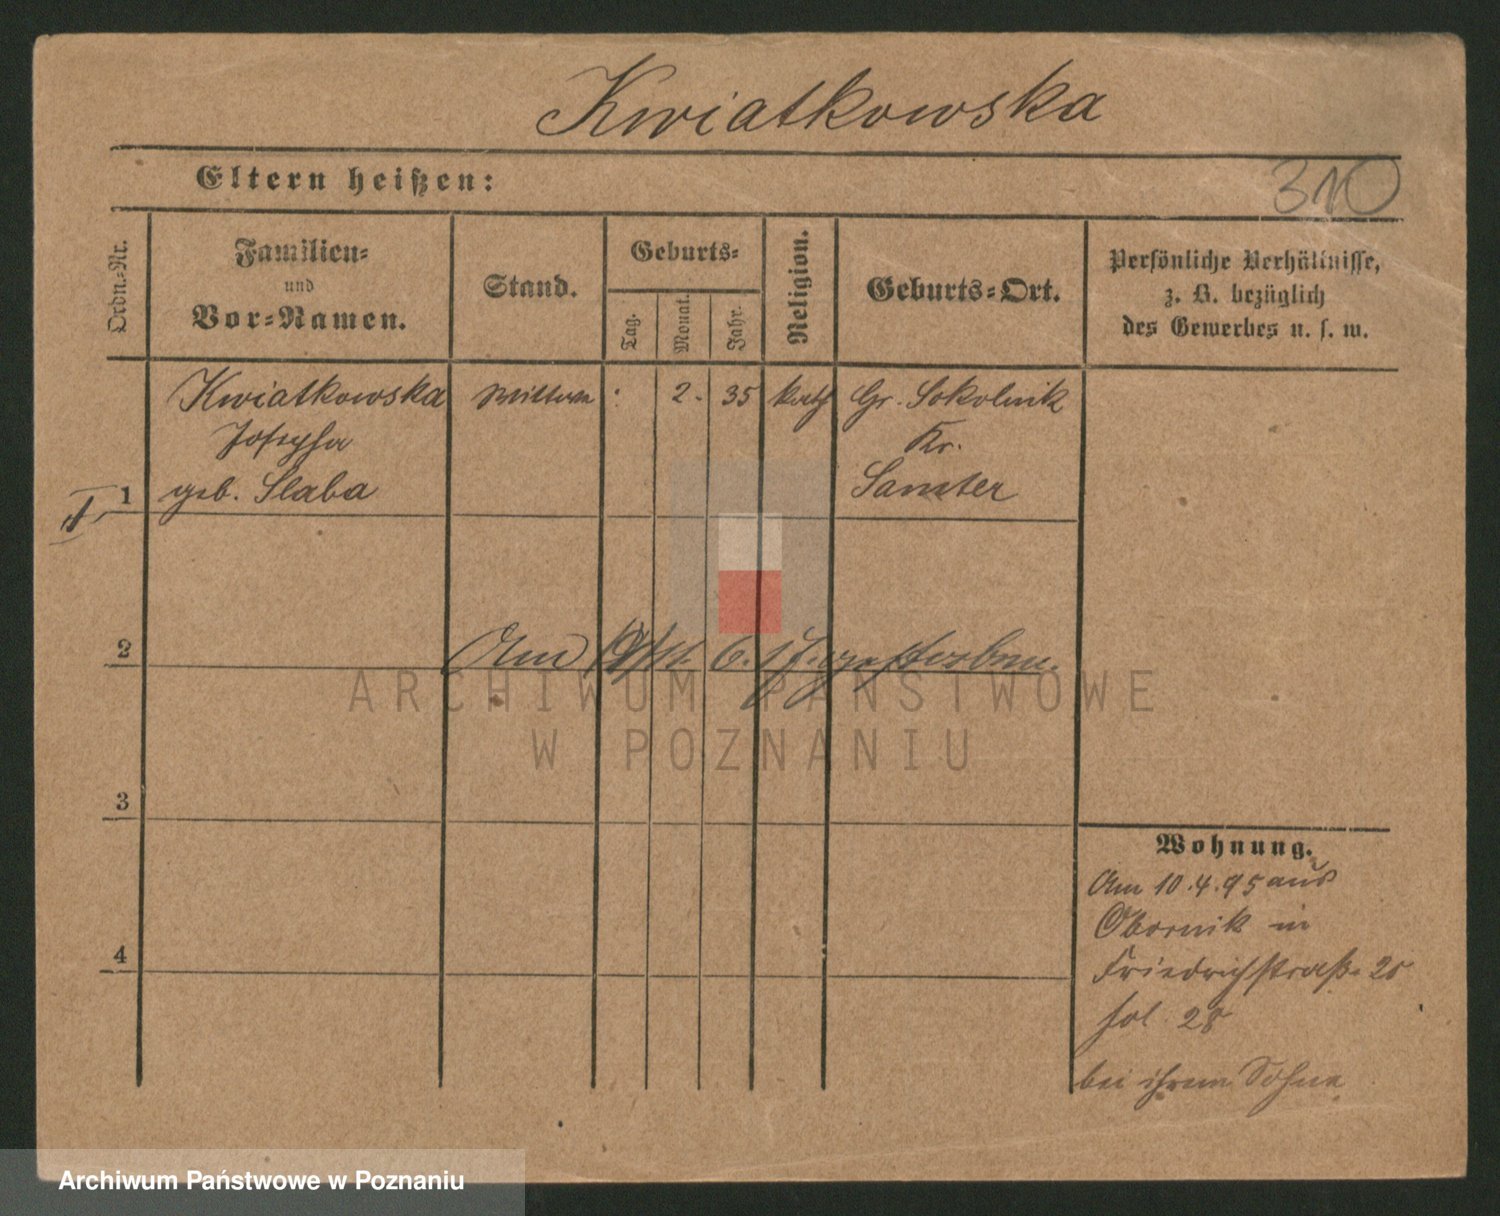 Kwiatkowska
310
Eltern heißen:
Ordn.-Nr.
Familien-
und
Vor-Namen.
Stand.
Geburts-
Tag.
Monat.
Jahr.
Religion.
Geburts-Ort.
Persönliche Verhältnisse,
z. B. bezüglich
des Gewerbes u. s. w.
1
Kwiatkowska
Josepha
geb. Slaba
2. 35 kath
Gr. Sokolnik
Kr.
Samter
2
Am 6. gestorben.
3
4
Wohnung.
Am 10.4.95 aus
Obornik in
Friedrichstraße 25
fol. 28
bei ihrem Sohne
ARCHIWUM PAŃSTWOWE
W POZNANIU
Archiwum Państwowe w Poznaniu